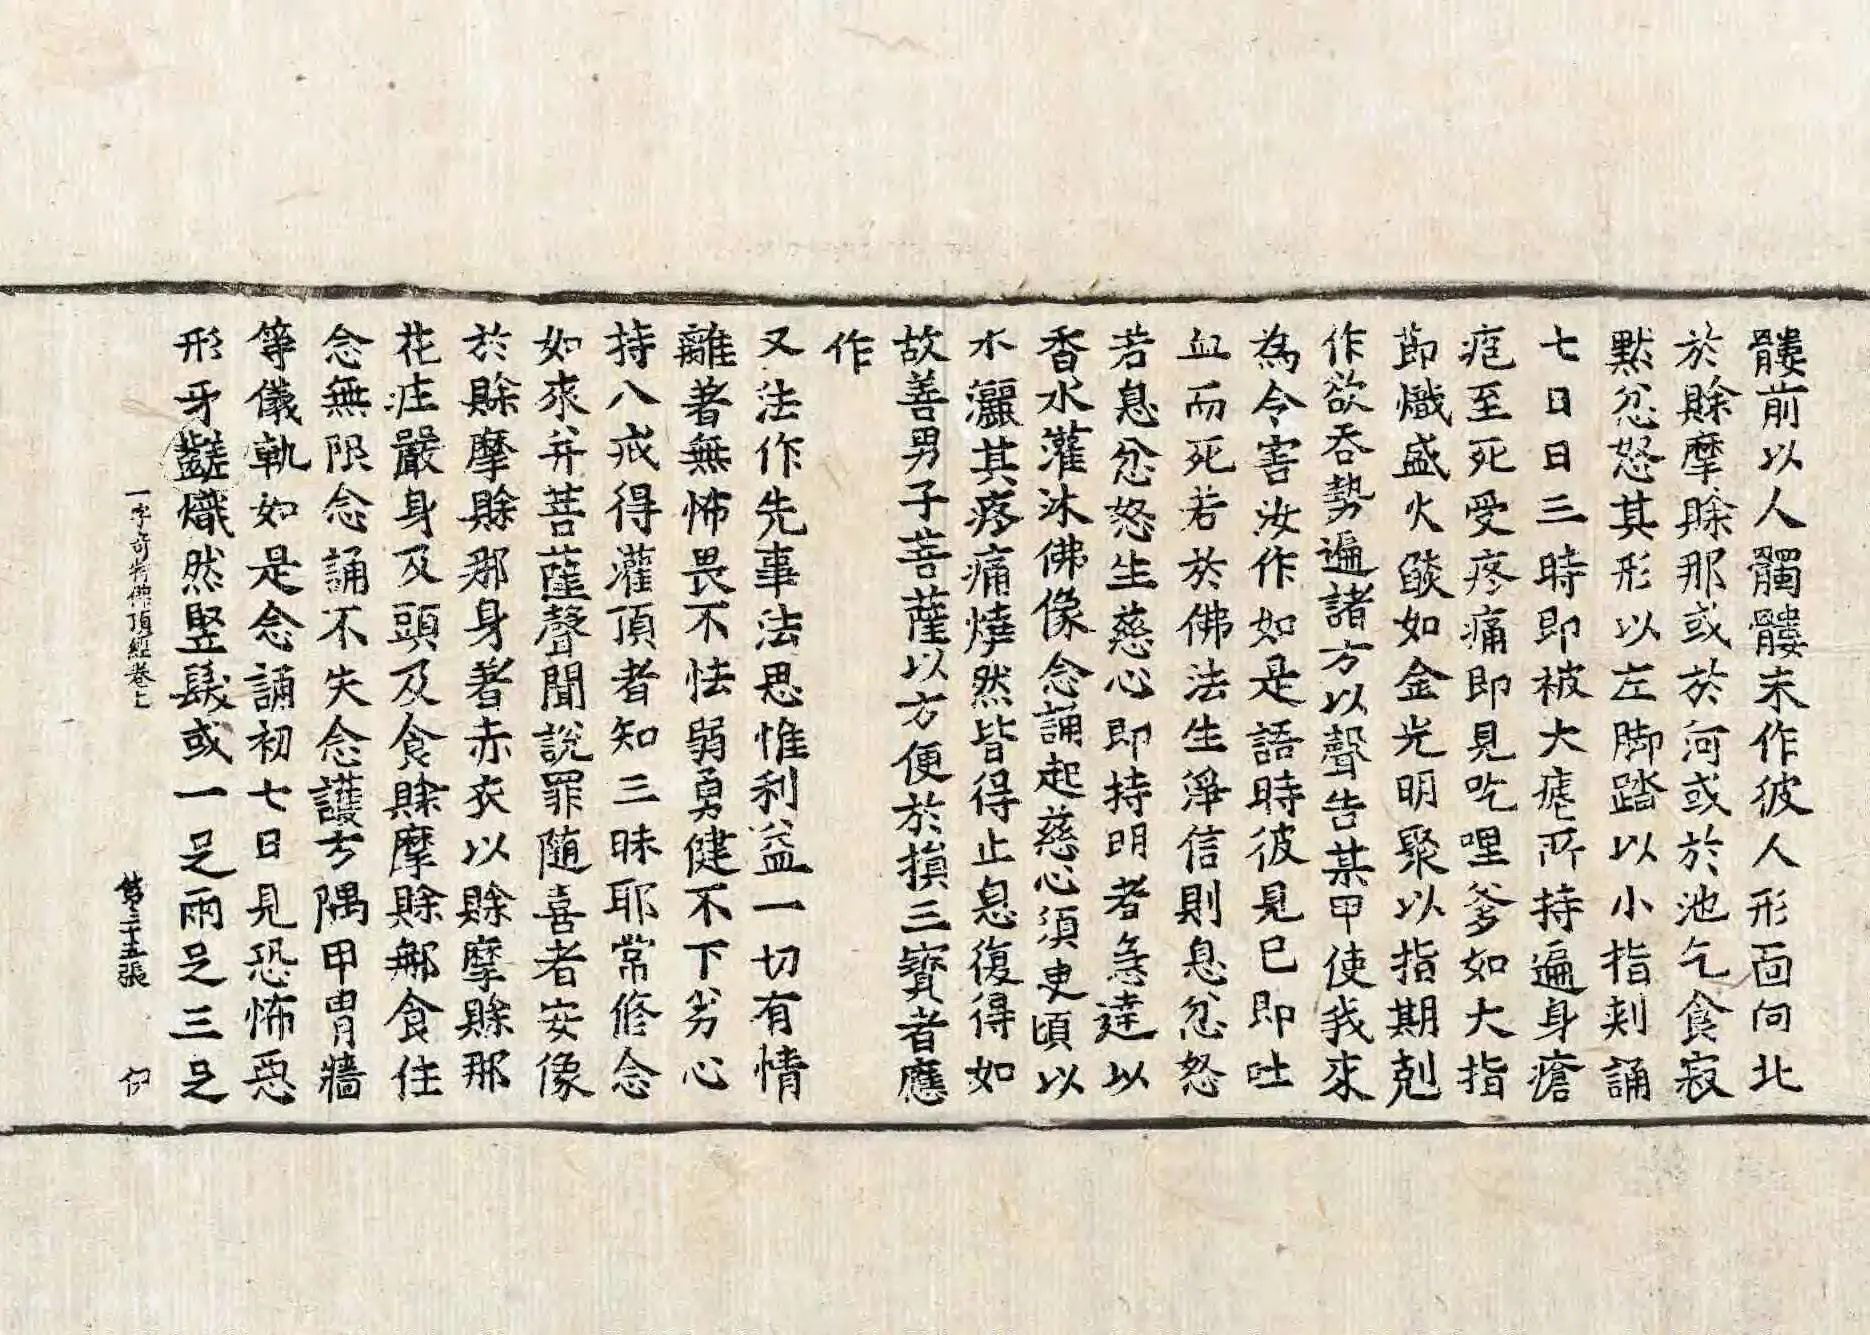 髏前以人髑髏末作彼人形面向北
於賖摩賖那或於河或於池乞食寂
黙忿怒其形以左脚踏以小指刾誦
七日日三時即被大瘧所持遍身瘡
疱至死受疼痛即見吃哩爹如大指
節熾盛火燄如金光明聚以指期剋
作欲吞勢遍諸方以聲告某甲使我来
為令害汝作如是語時彼見已即吐
血而死若於佛法生淨信則息忿怒
若息忿怒生慈心即持明者急達以
香水灌沐佛像念誦起慈心須臾頃以
水灑其疼痛燒然皆得止息復得如
故善男子菩薩以方便於損三寳者應
作
又法作先事法思惟利益一切有情
離著無怖畏不怯弱勇健不下劣心
持八戒得灌頂者知三昧耶常修念
如来并菩薩聲聞說罪隨喜者安像
於賖摩賖那身著赤衣以賖摩賖那
花庄嚴身及頭及食賖摩賖那食住
念無限念誦不失念護方隅甲冑牆
等儀軌如是念誦初七日見恐怖惡
形牙齹熾然竪髮或一足兩足三足
一字奇特佛頂經卷上 第二十五張 伊